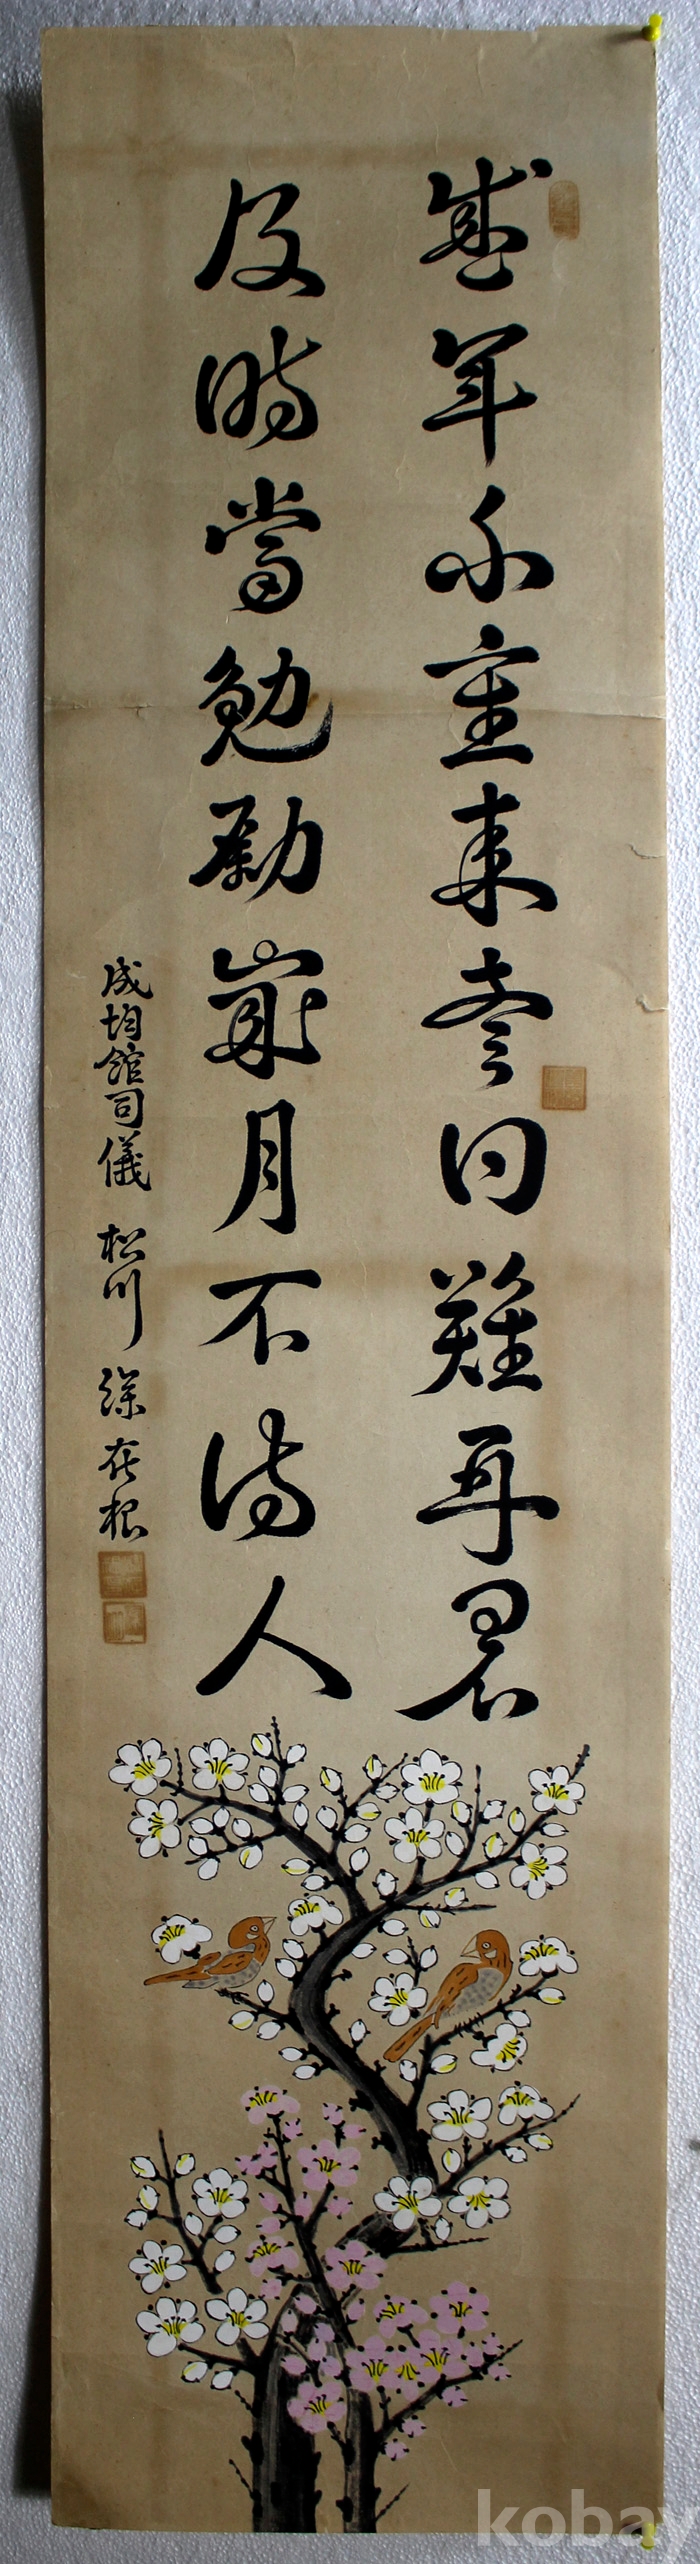 盛年不重来壱日難再晨
及時當勉励歳月不待人
成均館司儀 松川 徐在根
kobay